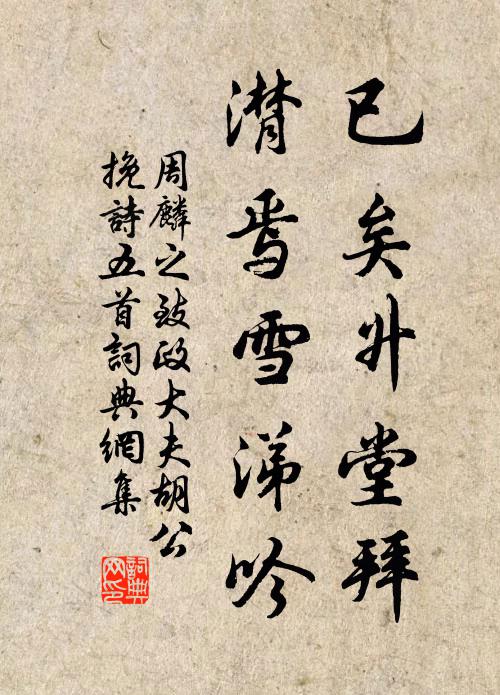 已矣升堂拜
潸焉雪涕吟
周麟之致政大夫胡公
挽詩五首詞典網集
詞典
网印